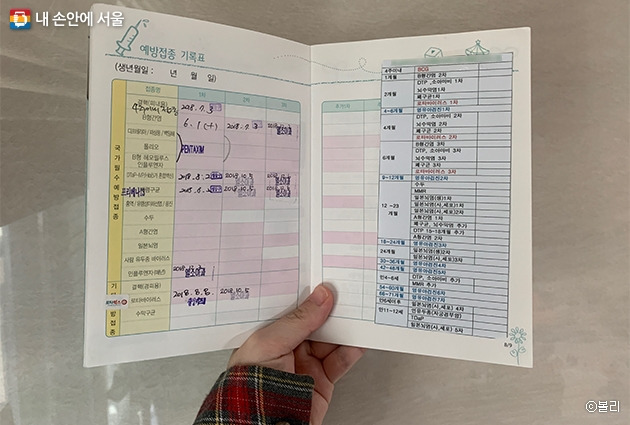 내 손안에 서울
예방접종 기록표
(생년월일 : 년 월 일)
접종명 1차 2차 3차 추가1차
국가필수예방접종
결핵(피내용) 2018. 7. 3
B형간염 6. 1 (+) 2018. 7. 3
폴리오 PENTAXIM
B형 헤모필루스
인플루엔자
2018. 10. 5
폐구균 2018. 10. 5
수두
A형간염
일본뇌염
사람 유두종 바이러스
인플루엔자
결핵(경피용)
로타바이러스 2018. 8. 8. 2018. 10. 5
수막구균
방접종
4주이내 BCG
1개월 B형간염 2차
2개월
DTP, 소아마비 1차
뇌수막염 1차
폐구균 1차
로타바이러스 1차
4~6개월 영유아검진1차
4개월
DTP, 소아마비 2차
뇌수막염 2차
폐구균 2차
로타바이러스 2차
6개월
B형간염 3차
DTP, 소아마비 3차
뇌수막염 3차
폐구균 3차
로타바이러스 3차
9~12개월 영유아검진2차
12 ~23
개월
수두
MMR
일본뇌염(생)1차
일본뇌염(사,세포)1차
일본뇌염(사,세포)2차
A형간염 1차
폐구균, 뇌수막염 추가
DTP 15~18개월 추가
A형간염 2차
18~24개월 영유아검진3차
24개월
일본뇌염(생)2차
일본뇌염(사,세포)3차
30~36개월 영유아검진4차
42~48개월 영유아검진5차
만4~6세
DTP, 소아마비 추가
MMR 추가
54~60개월 영유아검진6차
66~71개월 영유아검진7차
만6세이후 일본뇌염(사,세포) 4차
만11~12세
인유두종(자궁경부암)
TDaP
일본뇌염(사,세포) 5차
8/9
©볼리